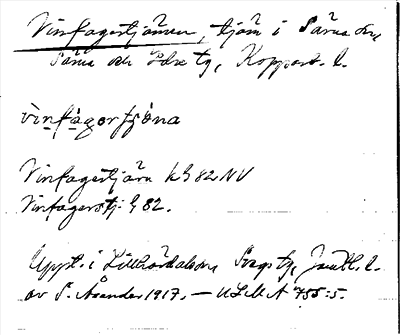 Vinfagertjärnen, tjärn i Särna sn,
Särna och Idre tg, Kopparb. l.
vìnfàgərþjö̀na
Vinfagertjärn kG 82 NV
Vinfagerstj. G 82.
Uppt. i Lillhärdals sn Svegs tg, Jämtl. l.
av S. Åsander 1917. — ULMA 755:5.